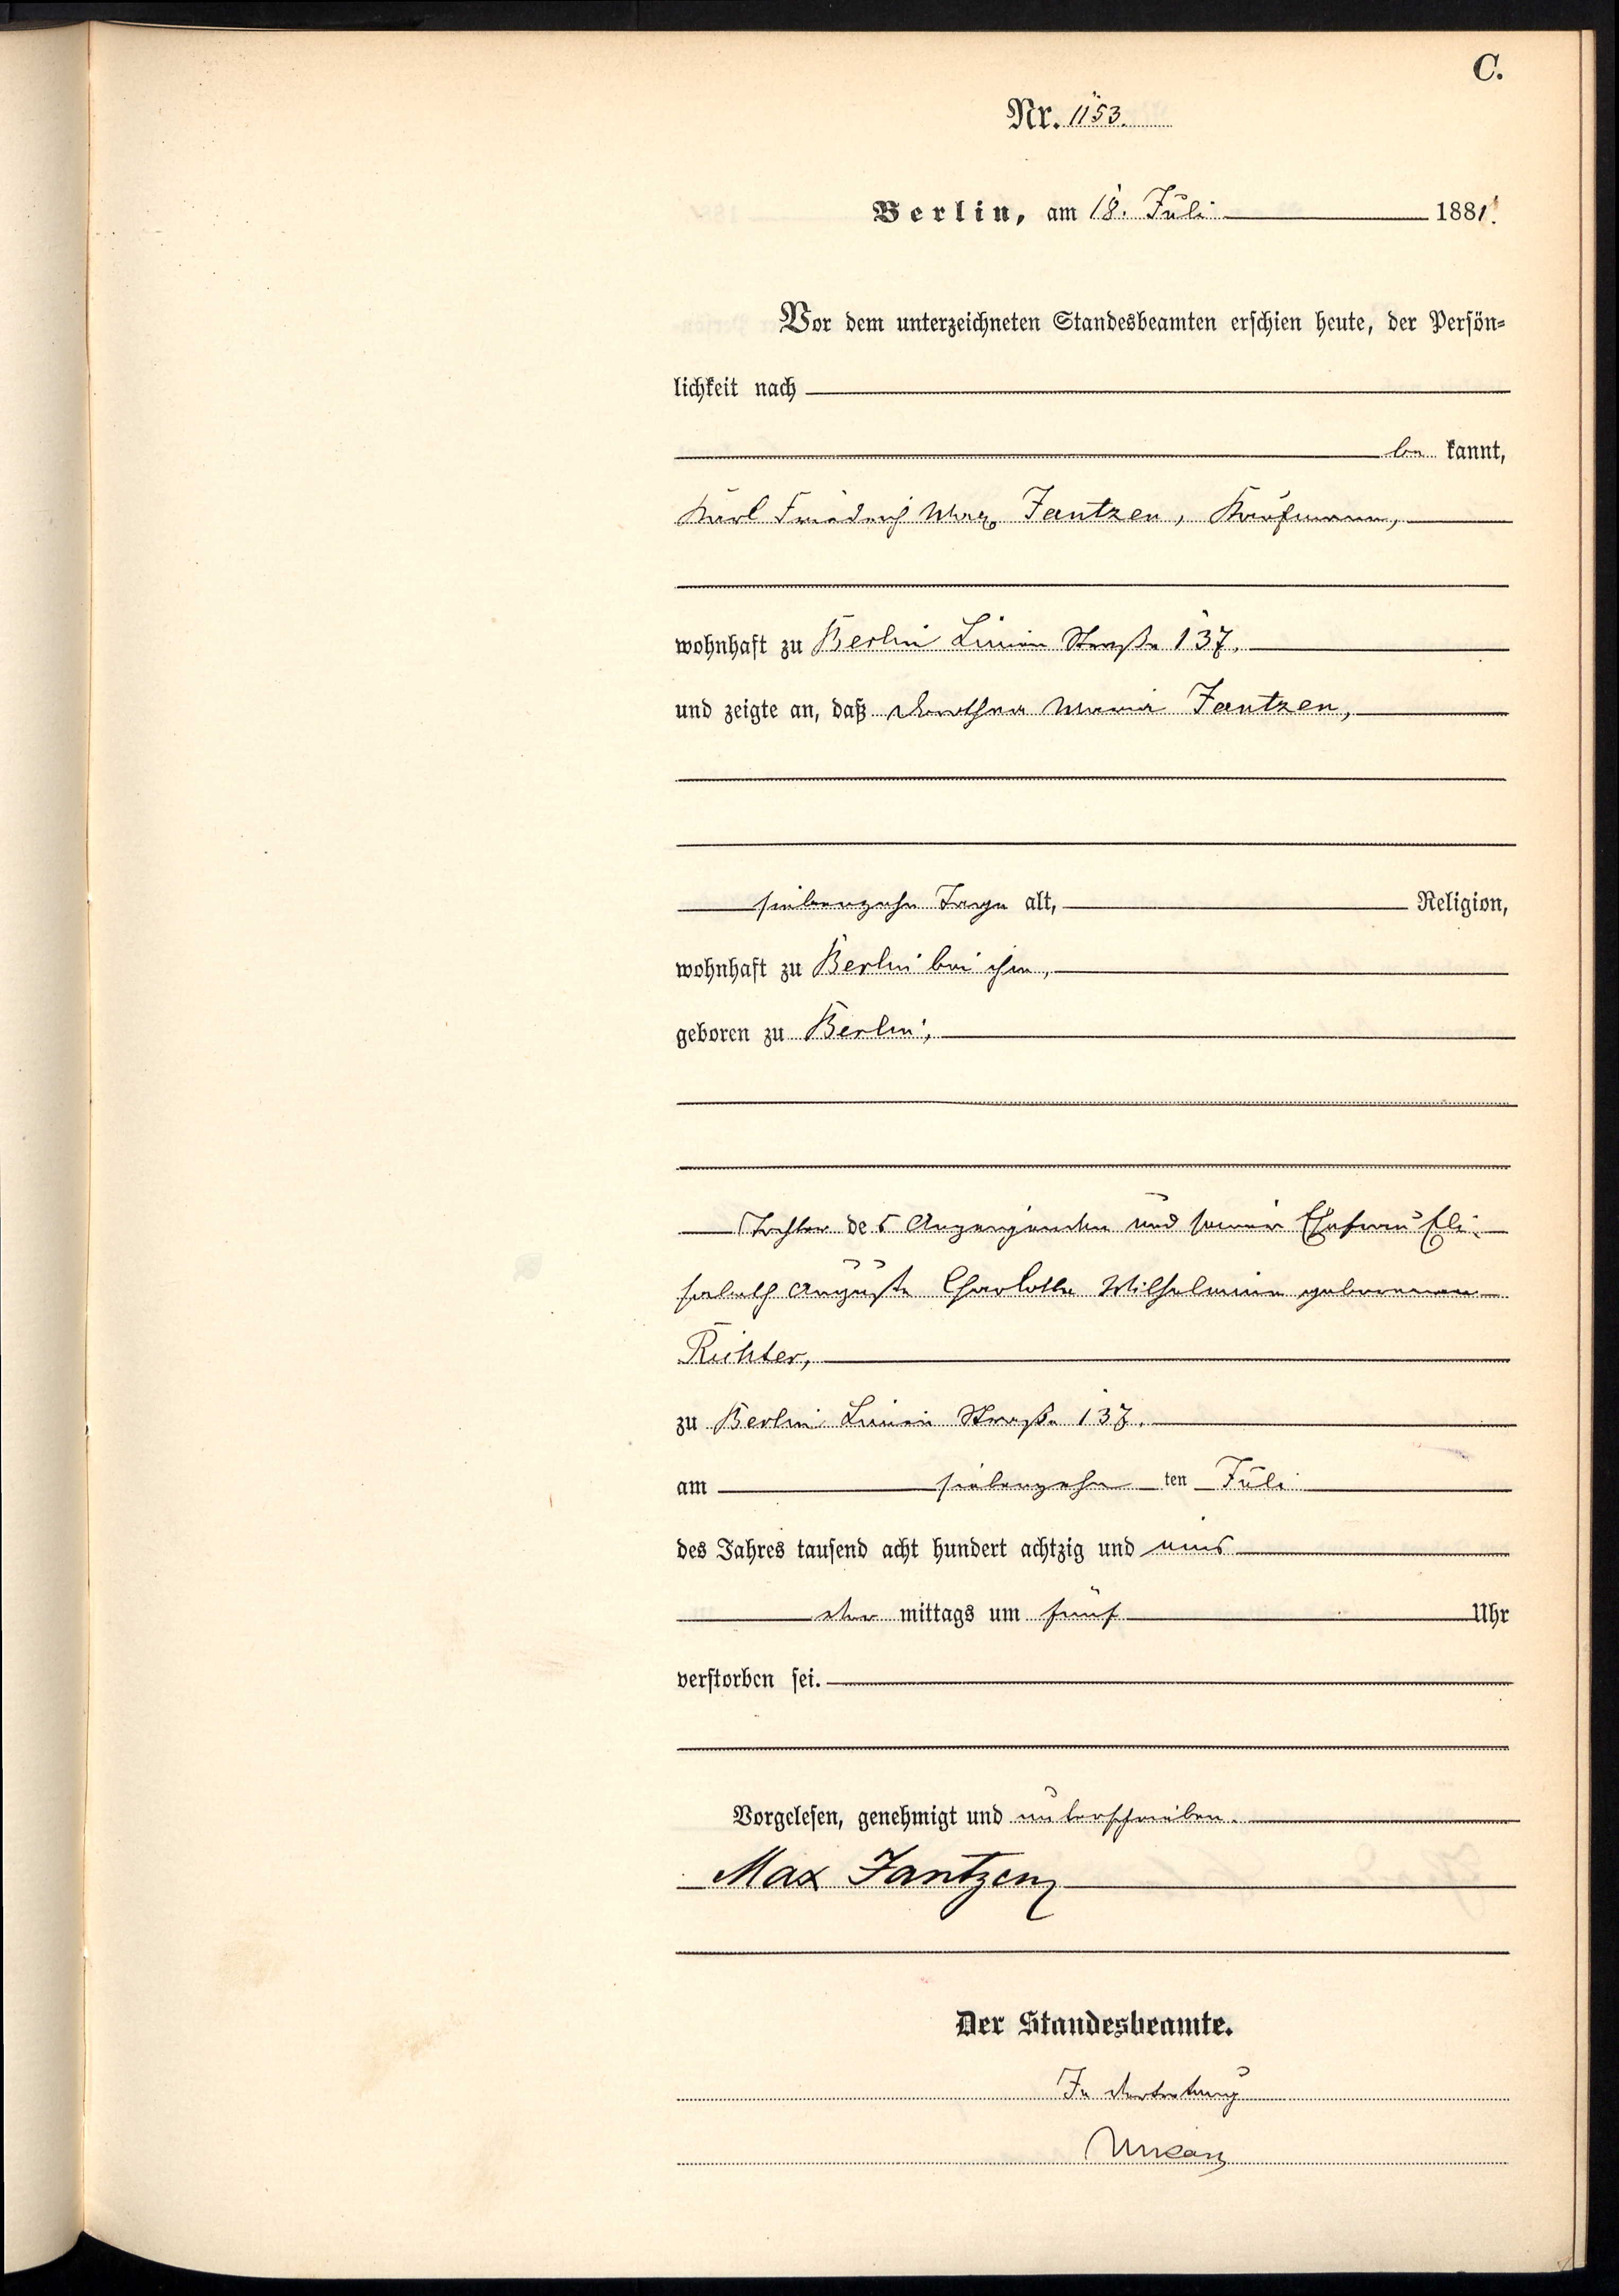 C.
Nr. 1153.
Berlin, am 18. Juli 1881.
Vor dem unterzeichneten Standesbeamten erschien heute, der Persön-
lichkeit nach
be kannt,
Karl Friedrich Max Jantzen, Kaufmann,
wohnhaft zu Berlin Linien Straße 137.
und zeigte an, daß Dorothea Maria Jantzen,
siebenzehn Tage alt, Religion,
wohnhaft zu Berlin bei ihm,
geboren zu Berlin,
Tochter des Anzeigenden und seiner Ehefrau Eli-
sabeth Auguste Charlotte Wilhelmine geborenen
Richter,
zu Berlin Linien Straße 137.
am siebenzehn ten Juli
des Jahres tausend acht hundert achtzig und eins
Vor mittags um fünf Uhr
verstorben sei.
Vorgelesen, genehmigt und unterschrieben.
Max Jantzen
Der Standesbeamte.
In Vertretung